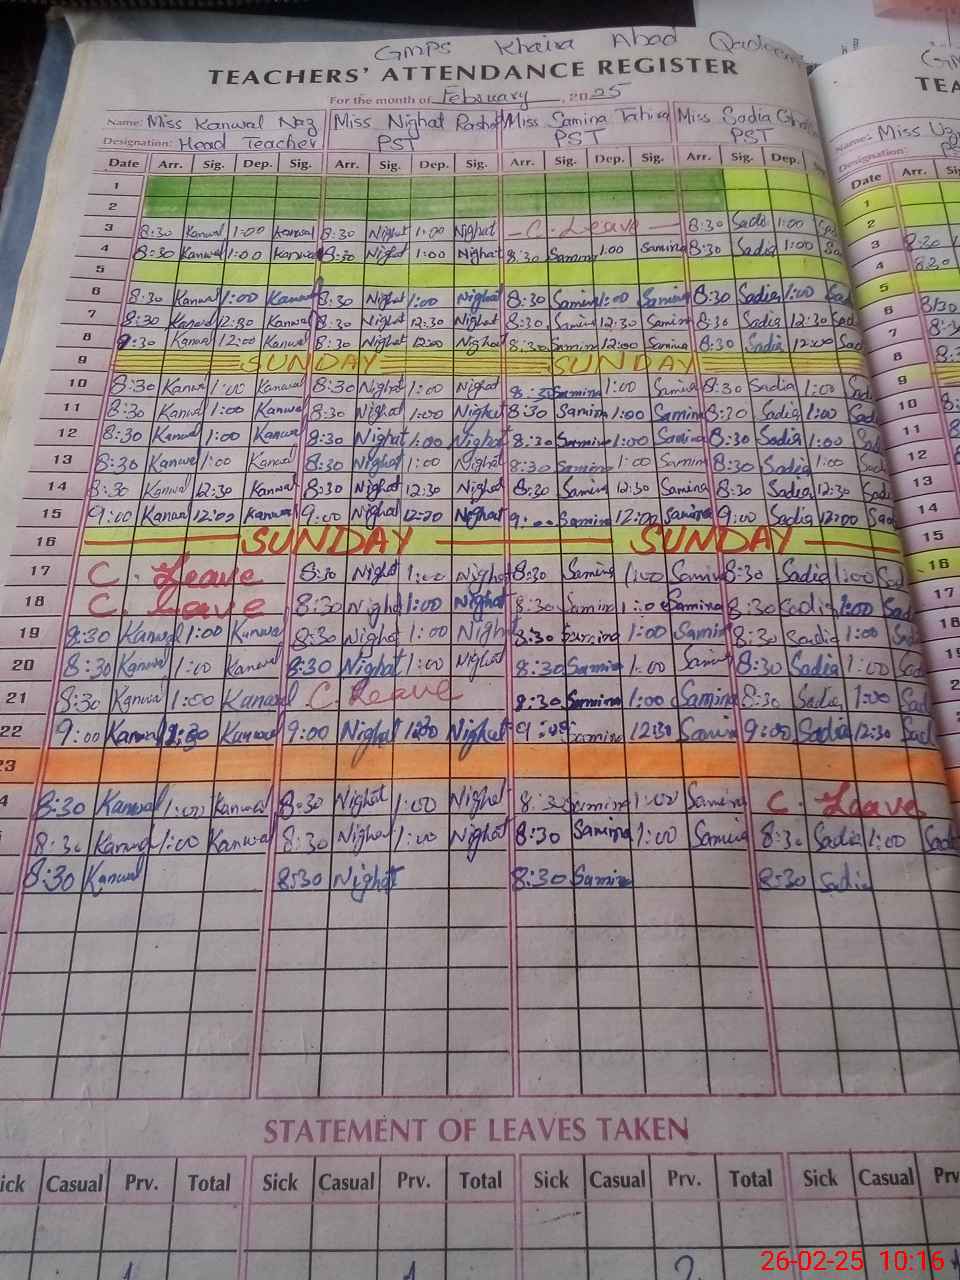 GMPS Khaira Abad Qadeem
TEACHERS' ATTENDANCE REGISTER
For the month of February, 2025
Name: Miss Kanwal Naz Miss Nighat Rashid Miss Samina Tahira Miss Sadia
Designation: Head Teacher PST PST PST
Date Arr. Sig. Dep. Sig. Arr. Sig. Dep. Sig. Arr. Sig. Dep. Sig. Arr. Sig. Dep.
1
2
3 8:30 Kanwal 1:00 Kanwal 8:30 Nighat 1:00 Nighat C. Leave 8:30 Sadia 1:00
4 8:30 Kanwal 1:00 Kanwal 8:30 Nighat 1:00 Nighat 8:30 Samina 1:00 Samina 8:30 Sadia 1:00
5
6 8:30 Kanwal 1:00 Kanwal 8:30 Nighat 1:00 Nighat 8:30 Samina 1:00 Samina 8:30 Sadia 1:00 Sad
7 8:30 Kanwal 12:30 Kanwal 8:30 Nighat 12:30 Nighat 8:30 Samina 12:30 Samina 8:30 Sadia 12:30 Sad
8 8:30 Kanwal 12:00 Kanwal 8:30 Nighat 12:00 Nighat 8:30 Samina 12:00 Samina 8:30 Sadia 12:00 Sad
9 SUNDAY SUNDAY
10 8:30 Kanwal 1:00 Kanwal 8:30 Nighat 1:00 Nighat 8:30 Samina 1:00 Samina 8:30 Sadia 1:00 Sad
11 8:30 Kanwal 1:00 Kanwal 8:30 Nighat 1:00 Nighat 8:30 Samina 1:00 Samina 8:30 Sadia 1:00 Sad
12 8:30 Kanwal 1:00 Kanwal 8:30 Nighat 1:00 Nighat 8:30 Samina 1:00 Samina 8:30 Sadia 1:00 Sad
13 8:30 Kanwal 1:00 Kanwal 8:30 Nighat 1:00 Nighat 8:30 Samina 1:00 Samina 8:30 Sadia 1:00 Sad
14 8:30 Kanwal 12:30 Kanwal 8:30 Nighat 12:30 Nighat 8:30 Samina 12:30 Samina 8:30 Sadia 12:30 Sad
15 9:00 Kanwal 12:00 Kanwal 9:00 Nighat 12:20 Nighat 9:00 Samina 12:00 Samina 9:00 Sadia 12:00 Sad
16 SUNDAY SUNDAY
17 C. Leave 8:30 Nighat 1:00 Nighat 8:30 Samina 1:00 Samina 8:30 Sadia 1:00 Sad
18 C. Leave 8:30 Nighat 1:00 Nighat 8:30 Samina 1:00 Samina 8:30 Sadia 1:00 Sad
19 8:30 Kanwal 1:00 Kanwal 8:30 Nighat 1:00 Nighat 8:30 Samina 1:00 Samina 8:30 Sadia 1:00 Sad
20 8:30 Kanwal 1:00 Kanwal 8:30 Nighat 1:00 Nighat 8:30 Samina 1:00 Samina 8:30 Sadia 1:00 Sad
21 8:30 Kanwal 1:00 Kanwal C. Leave 8:30 Samina 1:00 Samina 8:30 Sadia 1:00 Sad
22 9:00 Kanwal 12:30 Kanwal 9:00 Nighat 12:30 Nighat 9:00 Samina 12:30 Samina 9:00 Sadia 12:30 Sad
23
4 8:30 Kanwal 1:00 Kanwal 8:30 Nighat 1:00 Nighat 8:30 Samina 1:00 Samina C. Leave
8:30 Kanwal 1:00 Kanwal 8:30 Nighat 1:00 Nighat 8:30 Samina 1:00 Samina 8:30 Sadia 1:00 Sad
8:30 Kanwal 8:30 Nighat 8:30 Samina 8:30 Sadia
STATEMENT OF LEAVES TAKEN
ick Casual Prv. Total Sick Casual Prv. Total Sick Casual Prv. Total Sick Casual Prv
1 1 2
TEA
Name: Miss
Designation:
Date Arr. Sig
1
2
3 8:30
4 8:30
5
6 8:30
7
8
9
10
11
12
13
14
15
16
17
18
19
26-02-25 10:16